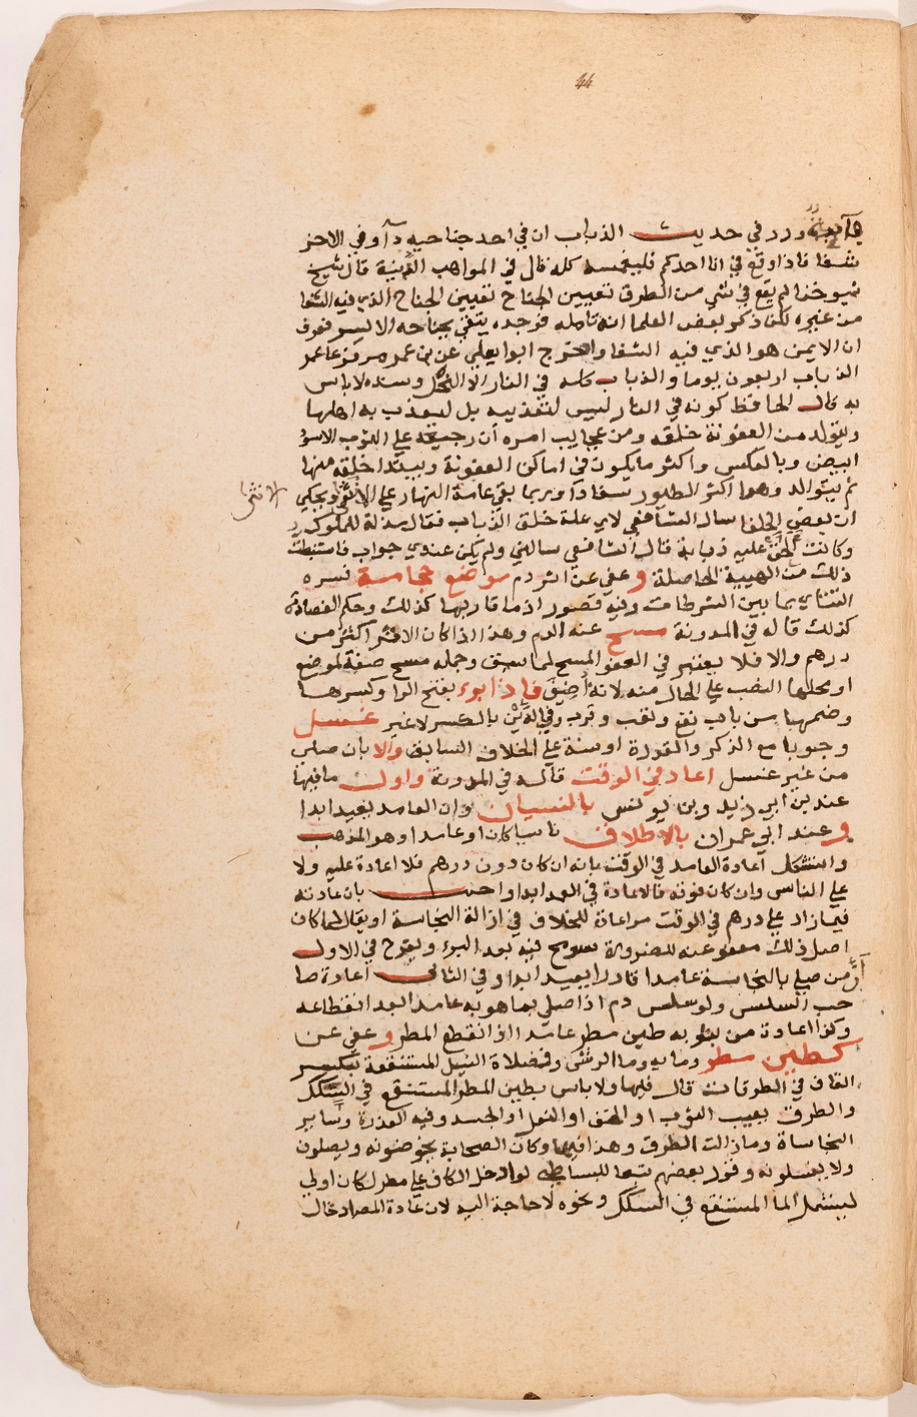 44
فائدة ورد في حديث الذباب ان في احد جناحيه دآ وفي الاخر
شفا فاذا وقع في انا احدكم فليغمسه كله قال في المواهب اللدنية قال شيخ
شيوخنا لم يقع في شي من الطرق تعيين الجناح الذي فيه الشفا
من غيره لكن ذكر بعض العلما انه تامله فوجده يتقي بجناحه الايسر فعرف
ان الايمن هو الذي فيه الشفا واخرج ابو يعلي عن بن عمر مرفوعا عمر
الذباب اربعون يوما والذباب كله في النار الا النحل وسنده لا باس
به قال الحافظ كونه في النار ليس لتعذيبه بل ليعذب به اهلها
ويتولد من العفونة خلقه ومن عجايب امره ان رجيعه علي الثوب الاسود
ابيض وبالعكس واكثر ما يكون في اماكن العفونة ويبتدا خلقه منها
ثم يتوالد وهو اكثر الطيور سفادا وربما بقي عامة النهار علي الانثي ويحكي
الانثى
ان بعض الخلفا سال الشافعي لاي علة خلق الذباب فقال مذلة للملوك
وكانت الحت عليه ذبابة قال الشافعي سالني ولم يكن عندي جواب فاستنبطت
ذلك من الهيبة الحاصلة وعفي عن اثر دم موضع حجامة فسره
التتاي بما بين الشرطات وفيه قصور اذ ما قاربها كذلك وحكم الفصادة
كذلك قاله في المدونة مسح عنه الدم وهذا اذا كان الاثر اكثر من
درهم والا فلا يعتبر في العفو المسح لما سبق وجملة مسح صفة لموضع
او محلها النصب علي الحال منه لانه اضيق فاذا برء بفتح الرا وكسرها
وضمها من باب نفع وتعب وقرب وفي الدين بالكسر لا غير غسل
وجوبا مع الذكر والقدرة او سنة علي الخلاف السابق والا بان صلي
من غير غسل اعاد في الوقت قاله في المدونة واول ما فيها
عند بن ابي زيد وبن يونس بالنسيان وان العامد يعيد ابدا
وعند ابي عمران بالاطلاق ناسيا كان او عامدا وهو المذهب
واستشكل اعادة العامد في الوقت بانه ان كان دون درهم فلا اعادة عليه ولا
علي الناسي وان كان فوقه فالاعادة في العمد ابدا واجيب بان اعادته
فيما زاد علي درهم في الوقت مراعاة للخلاف في ازالة النجاسة او يقال لما كان
اصل ذلك معفو عنه للضرورة سومح فيه بعد البرء ويقدح في الاول
ان من صلي بالنجاسة عامدا قادرا يعيد ابدا وفي الثاني اعادة صا
حب السلس ولو سلس دم اذا صلي بما هو به عامدا بعد انقطاعه
وكذا اعادة من بثوبه طين مطر عامدا اذ انقطع المطر وعفي عن
كطين مطر ومايه وما الرش وفضلاة النيل المستنقعة بكسر
القاف في الطرقات قال فيها ولا باس بطين المطر المستنقع في السكك
والطرق يصيب الثوب او الخف او النعل او الجسد وفيه العذرة وساير
النجاساة وما زالت الطرق وهذا فيها وكان الصحابة يخوضونه ويصلون
ولا يغسلونه وقول بعضهم تبعا للبساطي لو ادخل الكاف علي مطر لكان اولي
ليشمل الما المستنقع في السكك ونحوه لا حاجة اليه لان عادة المص ادخال